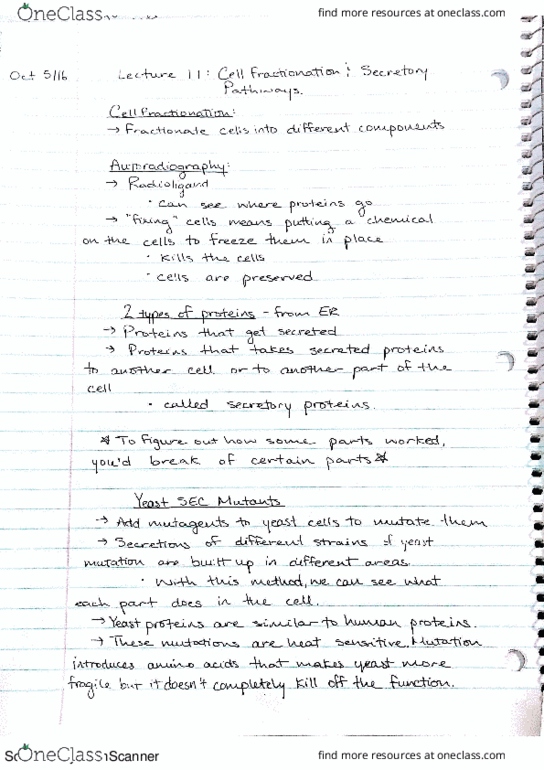 OneClass
find more resources at oneclass.com
Oct 5/16
Lecture 11: Cell Fractionation & Secretory
Pathways.
Cell Fractionation:
→ Fractionate cells into different components
Autoradiography:
→ Radioligand
• can see where proteins go
→ "fixing" cells means putting a chemical
on the cells to freeze them in place
• Kills the cells
• cells are preserved
2 types of proteins - from ER
→ Proteins that get secreted
→ Proteins that takes secreted proteins
to another cell or to another part of the
cell
• called secretory proteins.
* To figure out how some parts worked,
you'd break of certain parts *
Yeast SEC Mutants
→ Add mutagents to yeast cells to mutate them
→ Secretions of different strains of yeast
mutation are built up in different areas.
• With this method, we can see what
each part does in the cell.
→ Yeast proteins are similar to human proteins.
→ These mutations are heat sensitive. Mutation
introduces amino acids that makes yeast more
fragile but it doesn't completely kill off the function.
OneClass
Scanner
find more resources at oneclass.com